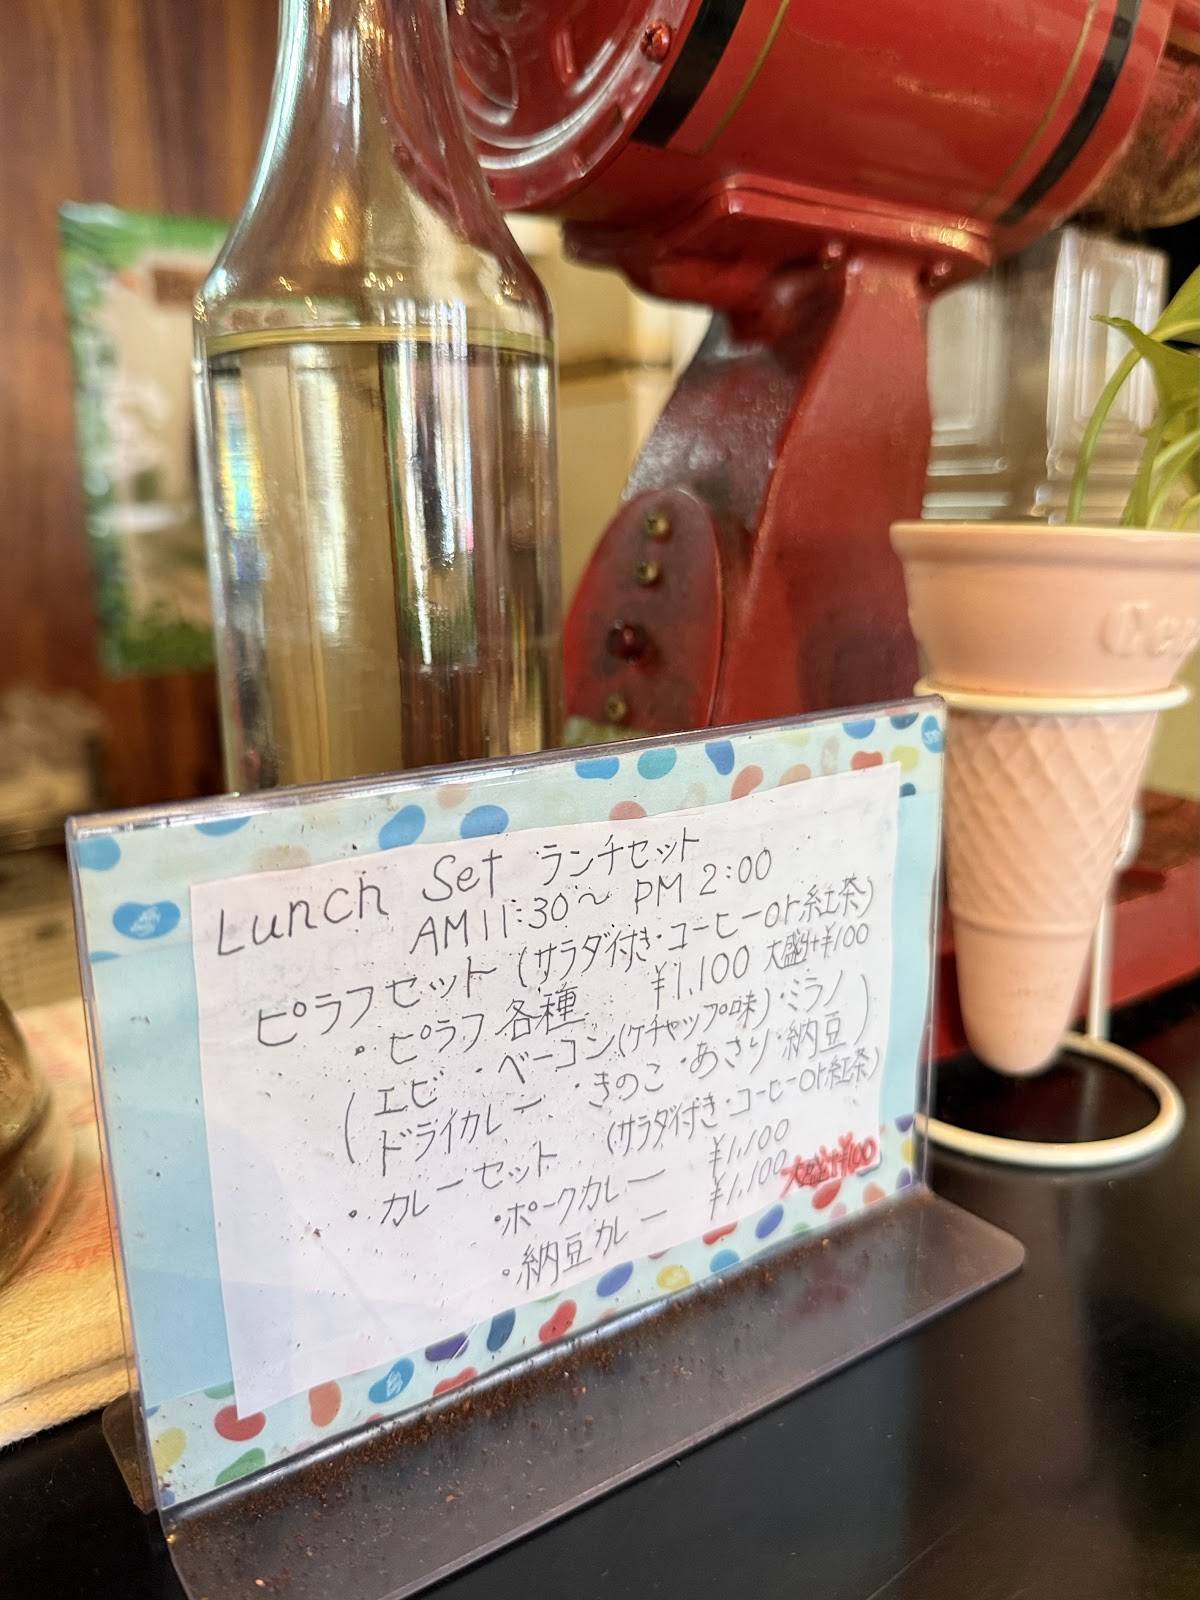 Lunch Set ランチセット
AM 11:30〜 PM 2:00
ピラフセット (サラダ付き・コーヒーor紅茶)
・ピラフ各種 ¥1,100 大盛り+¥100
(エビ ・ベーコン(ケチャップ味)・ミラノ
ドライカレー ・きのこ・あさり・納豆)
・カレーセット (サラダ付き・コーヒーor紅茶)
・ポークカレー ¥1,100
・納豆カレー ¥1,100 大盛り+¥100